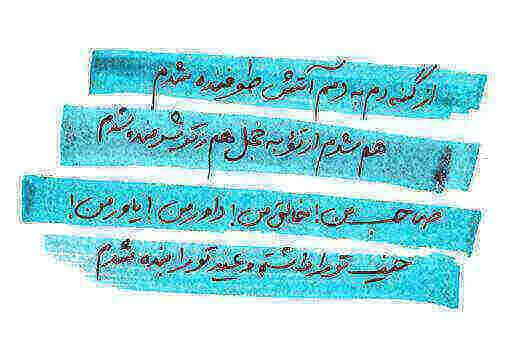 از گنه دم به دم آتش طوفنده شدم
هم شدم از تو به خجل هم ز تو شرمنده شدم
صاحب من! خالق من! داور من! یاور من!
حیف تو را داشتم و عبد تو را بنده شدم